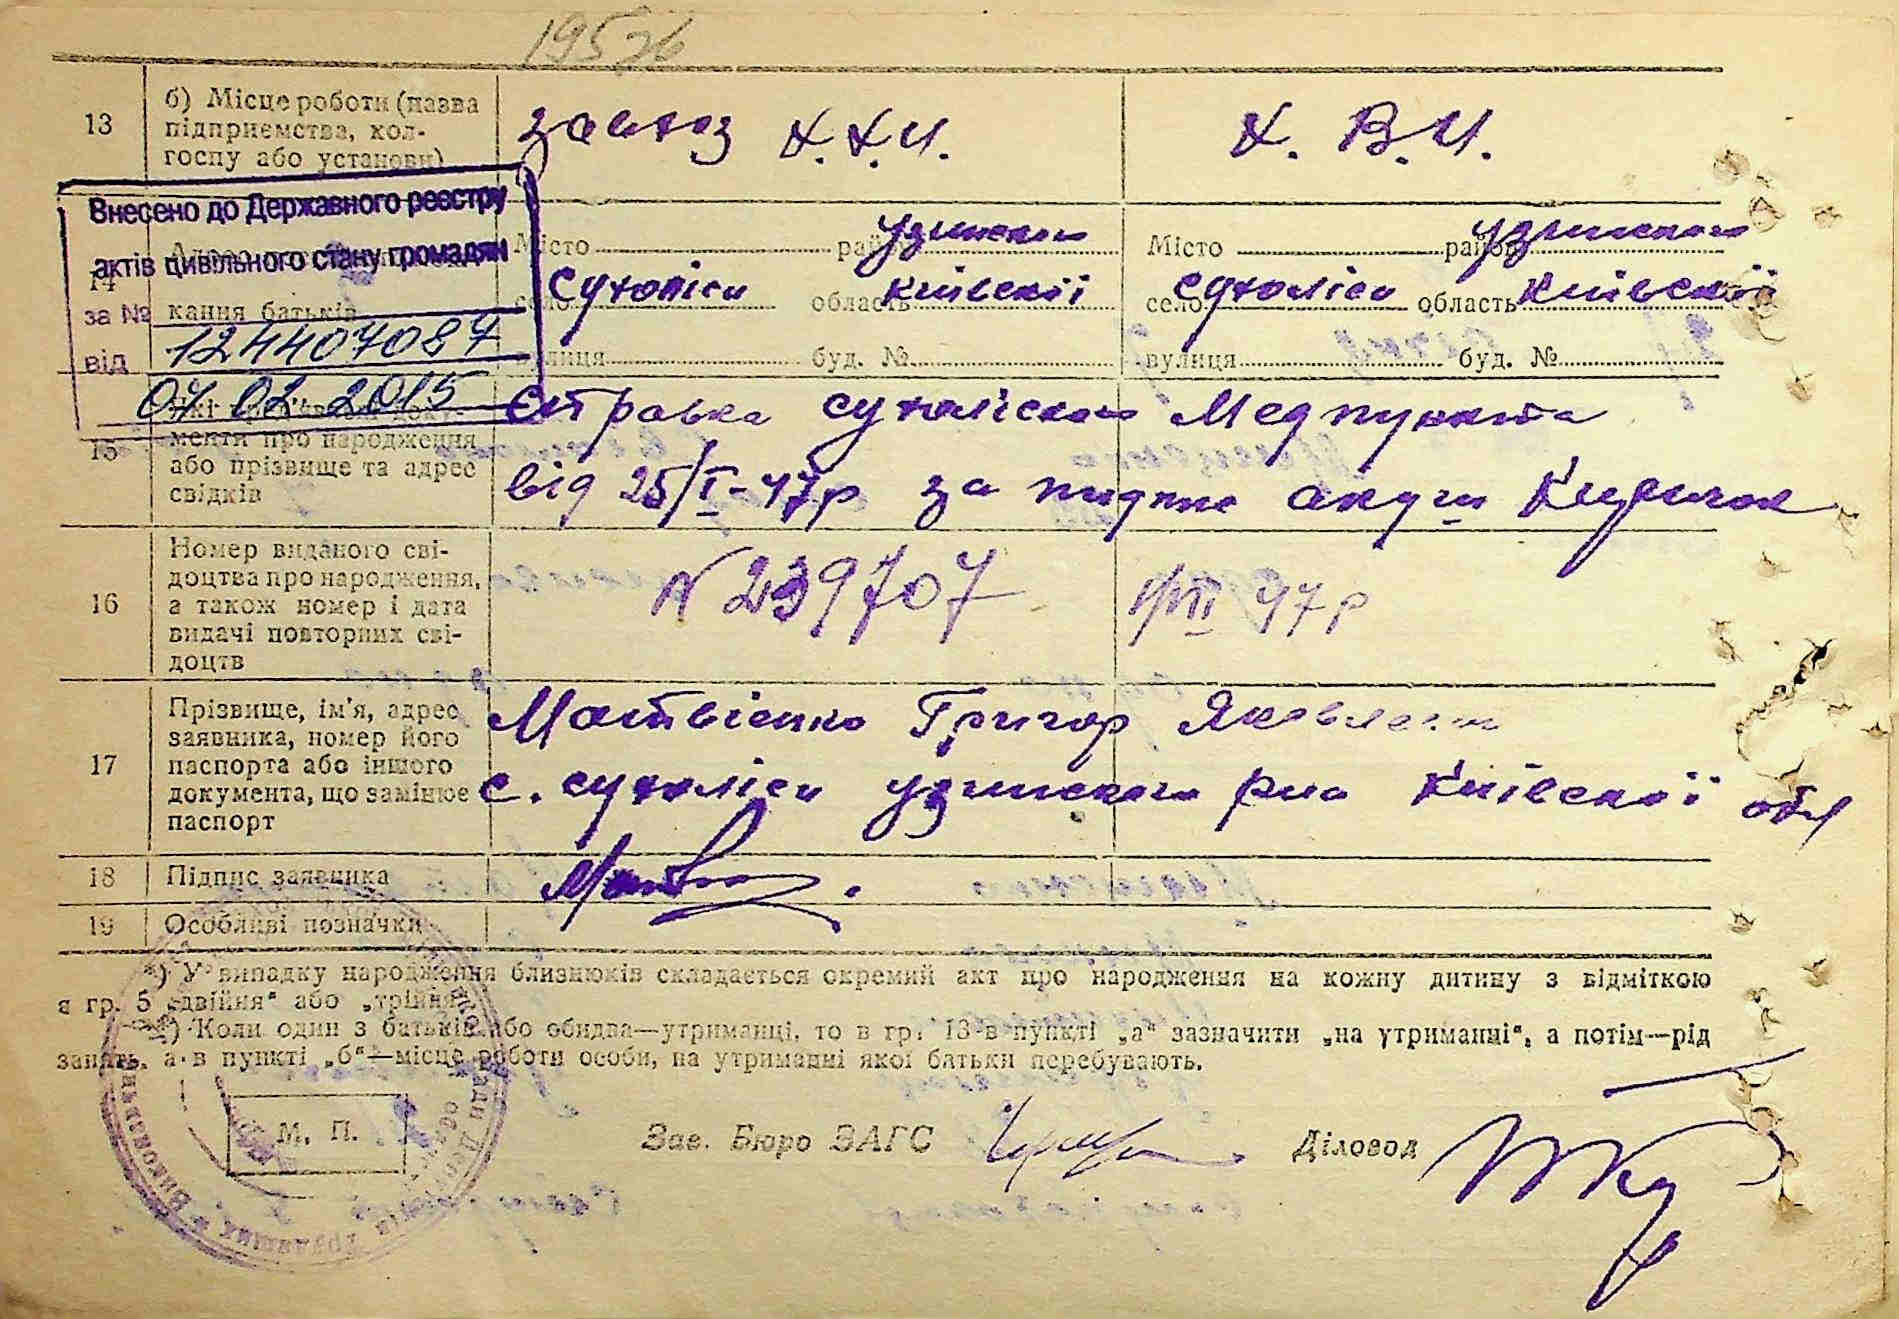 13
б) Місце роботи (назва
підприємства, кол-
госпу або установи)
Х. В. И.
Внесено до Державного реєстру
актів цивільного стану громадян
за №
124407087
від
07 02 2015
14
кання батьків
Місто район Узинського
село Сухоліси область Київської
вулиця буд. №
Місто район Узинського
село Сухоліси область Київської
вулиця буд. №
15
менти про народження
або прізвище та адрес
свідків
Справка Сухоліского Медпункта
від 25/I-47р за подпис акуш
16
Номер виданого сві-
доцтва про народження,
а також номер і дата
видачі повторних сві-
доцтв
N 239707 47р
17
Прізвище, ім'я, адрес
заявника, номер його
паспорта або іншого
документа, що замінює
паспорт
Матвієнко Григор Яковлевич
с. Сухоліси Узинського р-на Київської обл
18
Підпис заявника
19
Особливі позначки
*) У випадку народження близнюків складається окремий акт про народження на кожну дитину з відміткою
в гр. 5 „двійня“ або „трійня“.
**) Коли один з батьків або обидва—утриманці, то в гр. 13 в пункті „а“ зазначити „на утриманні“, а потім—рід
занять, а в пункті „б“—місце роботи особи, на утриманні якої батьки перебувають.
М. П.
Зав. Бюро ЗАГС
Діловод